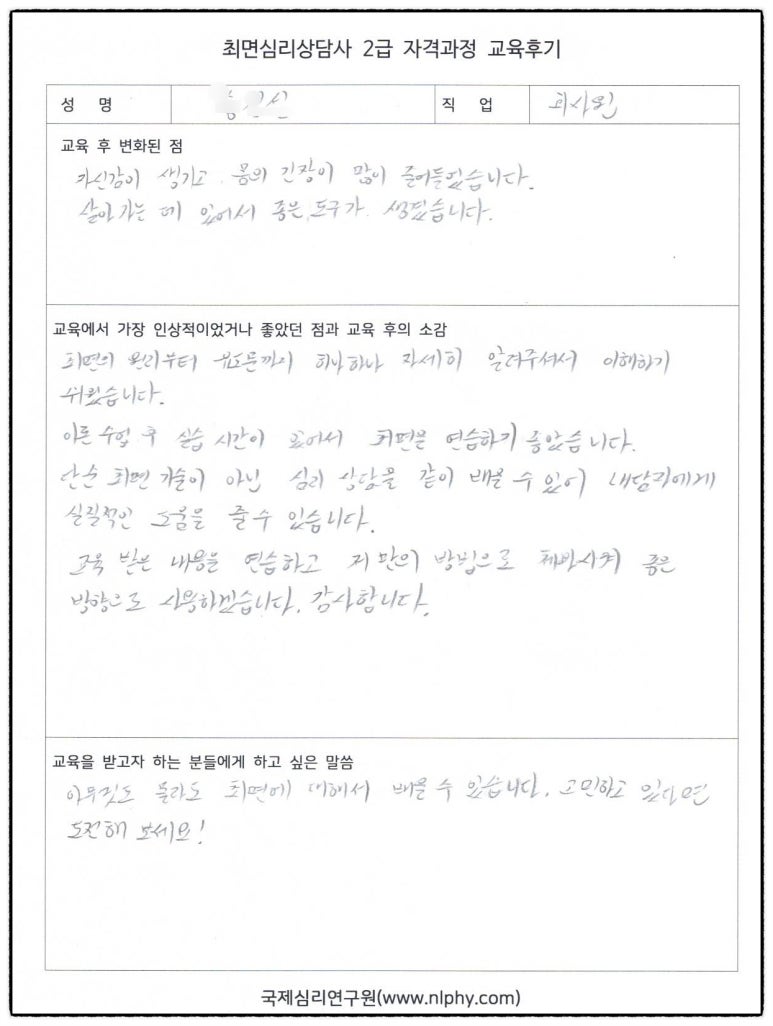 최면심리상담사 2급 자격과정 교육후기
성 명
직 업 회사원
교육 후 변화된 점
자신감이 생기고 몸의 긴장이 많이 줄어들었습니다.
살아가는 데 있어서 좋은 도구가 생겼습니다.
교육에서 가장 인상적이었거나 좋았던 점과 교육 후의 소감
최면의 원리부터 유도문까지 하나하나 자세히 알려주셔서 이해하기
쉬웠습니다.
이론 수업 후 실습 시간이 있어서 최면을 연습하기 좋았습니다.
단순 최면 기술이 아닌 심리 상담을 같이 배울 수 있어 내담자에게
실질적인 도움을 줄 수 있습니다.
교육 받은 내용을 연습하고 저만의 방법으로 좋은
방향으로 사용하겠습니다. 감사합니다.
교육을 받고자 하는 분들에게 하고 싶은 말씀
아무것도 몰라도 최면에 대해서 배울 수 있습니다. 고민하고 있다면
도전해 보세요!
국제심리연구원(www.nlphy.com)